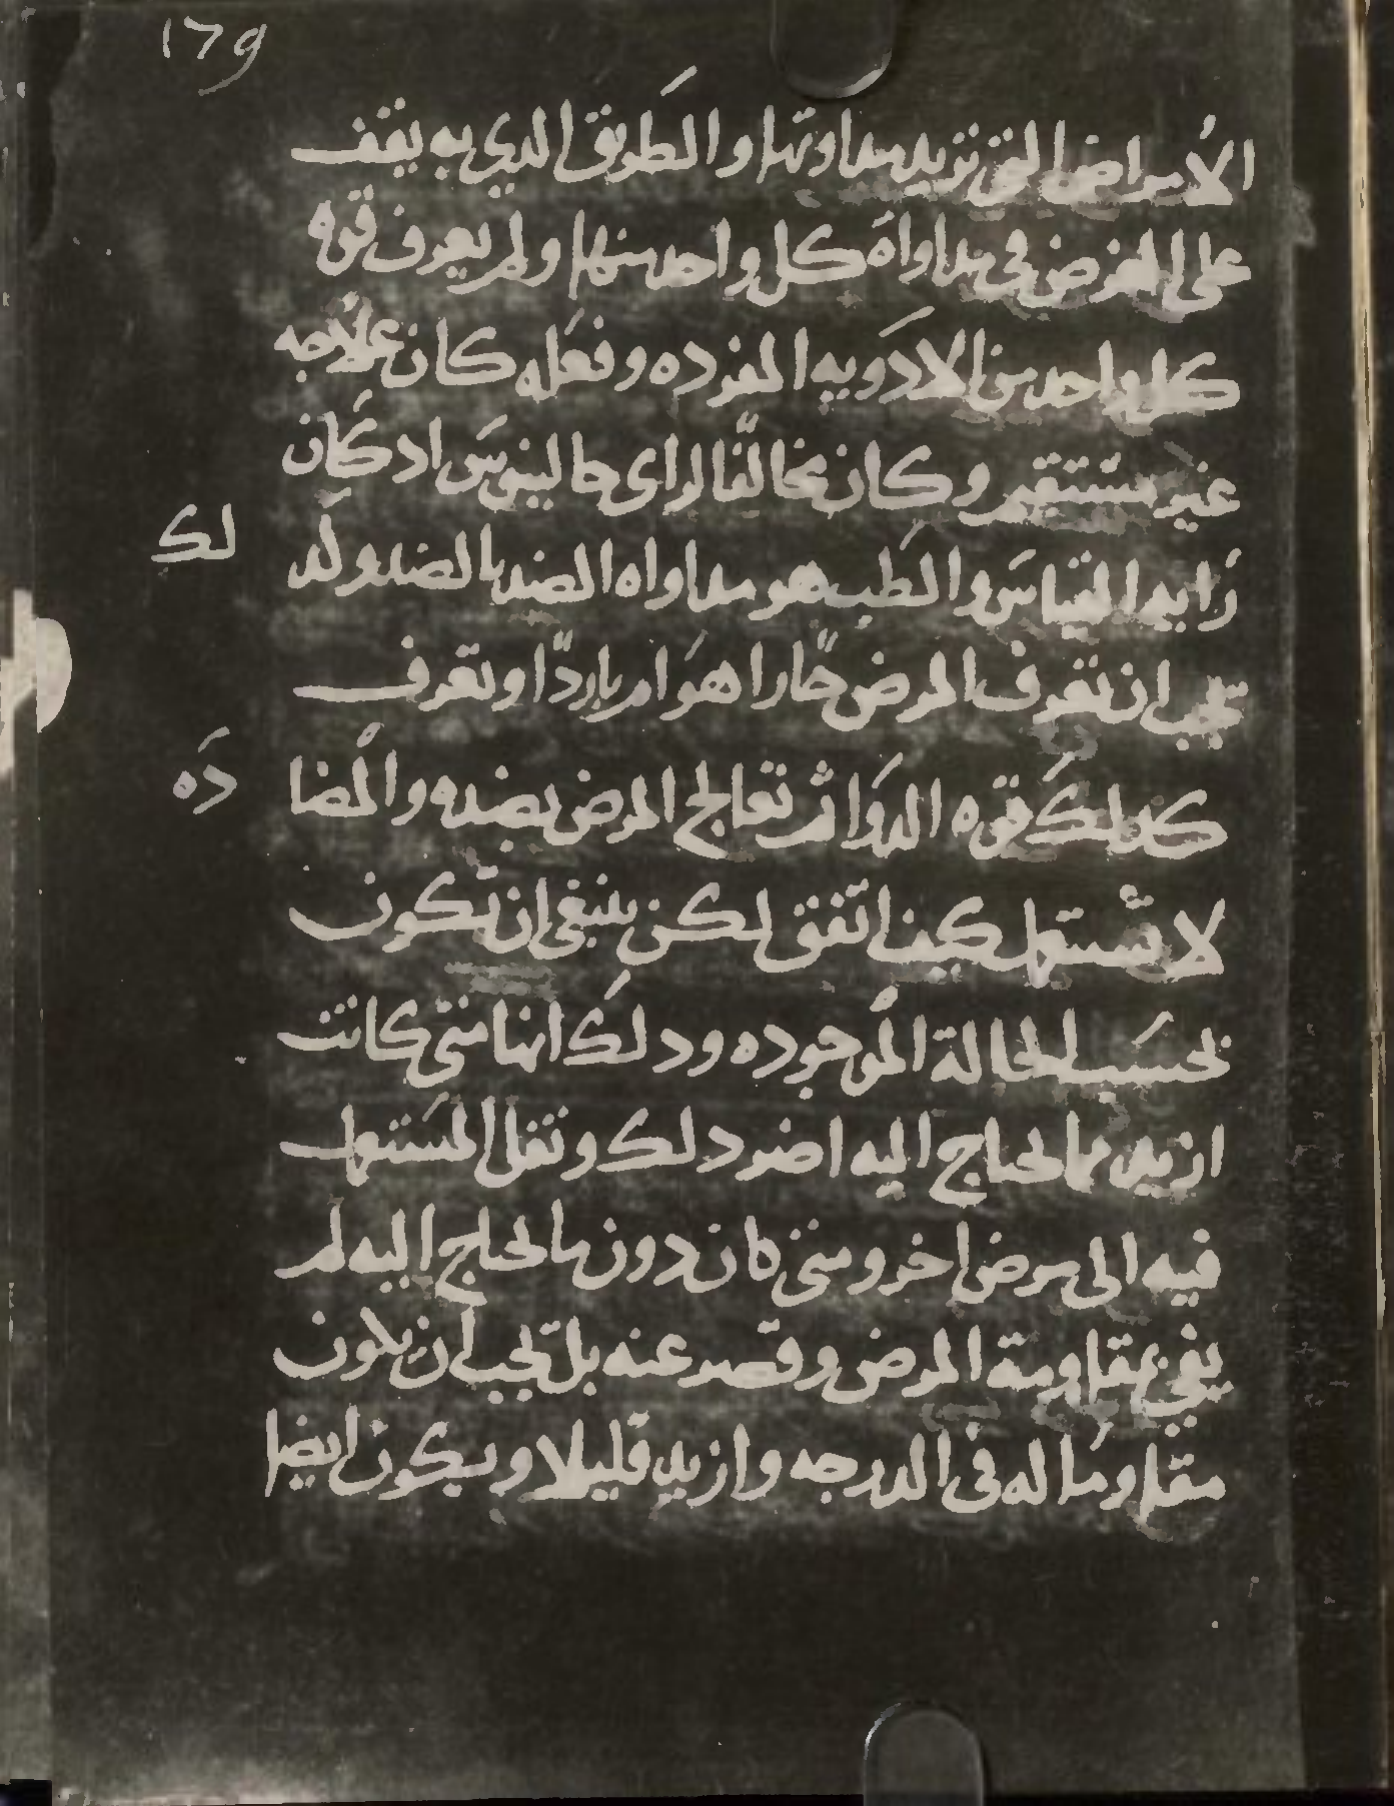 179
الأمراض التي تريد مداوتها والطريق الدي به يقف
على الغرض في مداواة كل واحد منها ولم يعرف قوه
كل واحد من الادويه المفرده وفعله كان علاجه
غير مستقيم وكان مخالفا لراى جالينوس اد كان
رايه القياس والطب هو مداواه الضد بالضد ولد
لك
يجب ان تعرف المرض حارا هو ام باردا وتعرف
كدلك قوه الدوا ثم تعالج المرض بضده والمضا
ده
لا تستعمل كيف اتفق لكن ينبغى ان تكون
بحسب الحالة الموجوده ودلك انها متى كانت
ازيد مما يحتاج اليه اضر دلك ونقل المستعمل
فيه الى مرض اخر ومتى كان دون ما يحتاج اليه لم
يفي بمقاومة المرض وقصر عنه بل يجب ان يكون
مقاوما له فى الدرجه وازيد قليلا ويكون ايضا